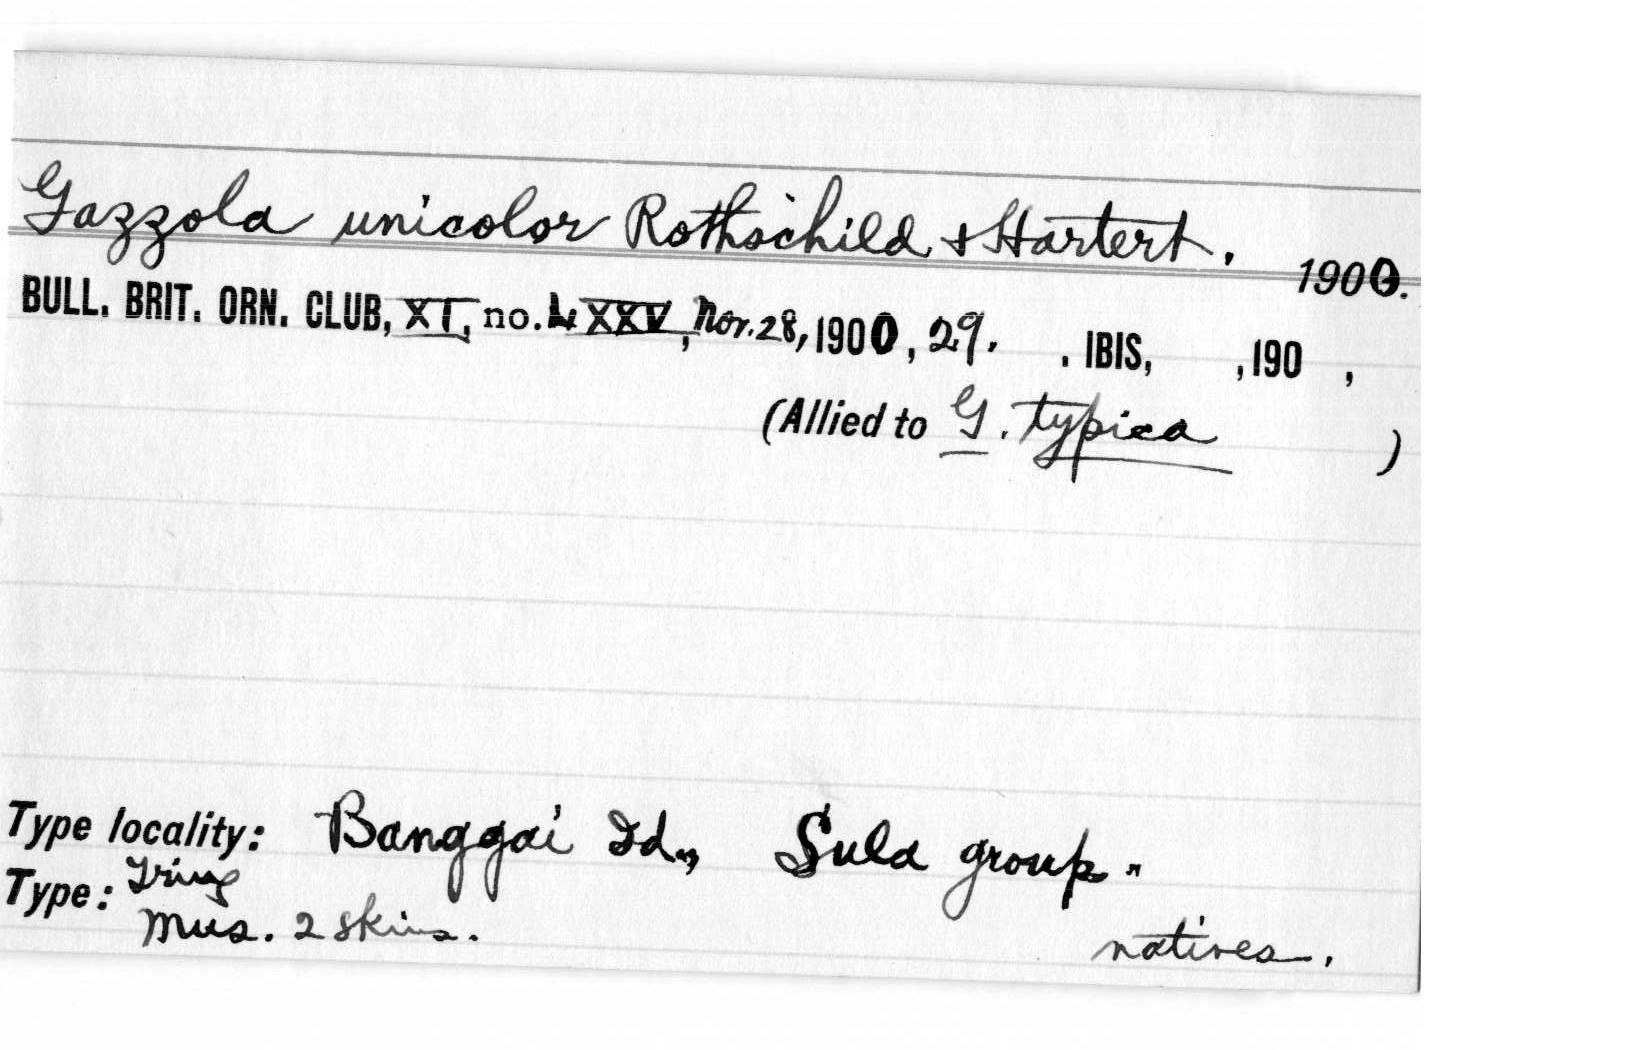 Gazzola unicolor Rothschild & Hartert. 1900.
BULL. BRIT. ORN. CLUB, XI, no. LXXV, Nov. 28, 1900, 29. . IBIS, , 190 ,
(Allied to G. typica )
Type locality: Banggai Id., Sula group.
Type: Tring
Mus. 2 skins. natives.